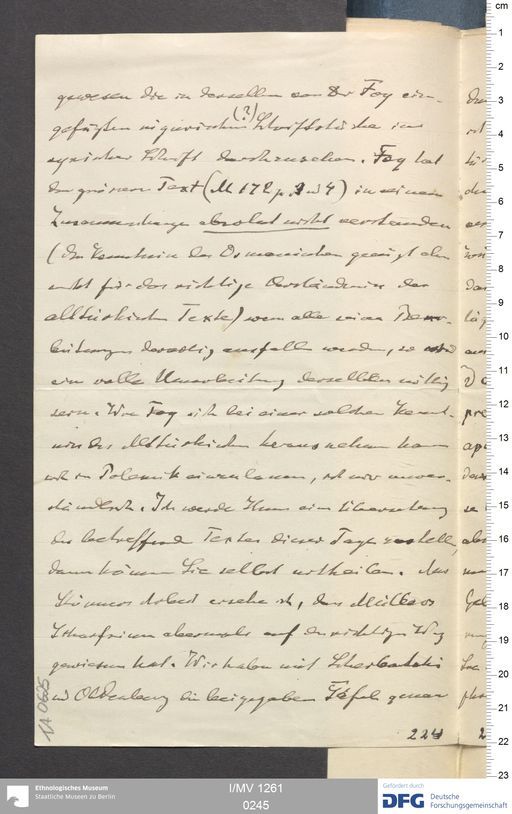 gewesen die in derselben von Dr Foy ein-
gefügten uigurischen (?) Schriftstücke in
syrischer Schrift durchzusehen. Foy hat
den grösseren Text (M 172 p. 3 u 4) in seinem
Zusammenhange absolut nicht verstanden
(die Kenntnis des Osmanischen genügt eben
nicht für das richtige Verständnis der
alttürkischen Texte) wenn alle seine Bear-
beitungen derartig ausfallen werden, so wird
ein volle Umarbeitung derselben nöthig
sein. Wie Foy sich bei einer solchen Kennt-
nis des Alttürkischen herausnehmen kann
sich in Polemik einzulassen, ist mir unver-
ständlich. Ich werde Ihnen eine Übersetzung
des betreffenden Textes dieser Tage zustellen,
dann können Sie selbst urtheilen. Aus
ersehe ich, dass Müllers
Scharfsinn abermals auf den richtigen Weg
gewiesen hat. Wir haben mit
und Oldenburg die beigegebenen Tafeln genau
224
1A 0625
Ethnologisches Museum
Staatliche Museen zu Berlin
I/MV 1261
0245
Gefördert durch
DFG Deutsche
Forschungsgemeinschaft
cm
1
2
3
4
5
6
7
8
9
10
11
12
13
14
15
16
17
18
19
20
21
22
23